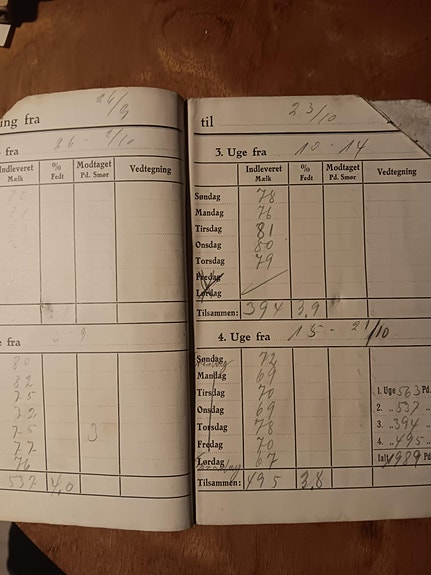 ing fra 26/9
fra 26 - 2/10
Indleveret Mælk % Fedt Modtaget Pd. Smør Vedtegning
e fra 3 - 9
80
82
75
72
75 3
77
76
537 4,0
til 23/10
3. Uge fra 10 - 14
Indleveret Mælk % Fedt Modtaget Pd. Smør Vedtegning
Søndag 78
Mandag 76
Tirsdag 81
Onsdag 80
Torsdag 79
Fredag
Lørdag
Tilsammen: 394 3,9
4. Uge fra 15 - 21/10
Søndag 72
Mandag 69
Tirsdag 70
Onsdag 69
Torsdag 78
Fredag 70
Lørdag 67
Tilsammen: 495 3,8
1. Uge 563 Pd.
2. „ 537 „
3. „ 394 „
4. „ 495 „
Ialt 1989 Pd